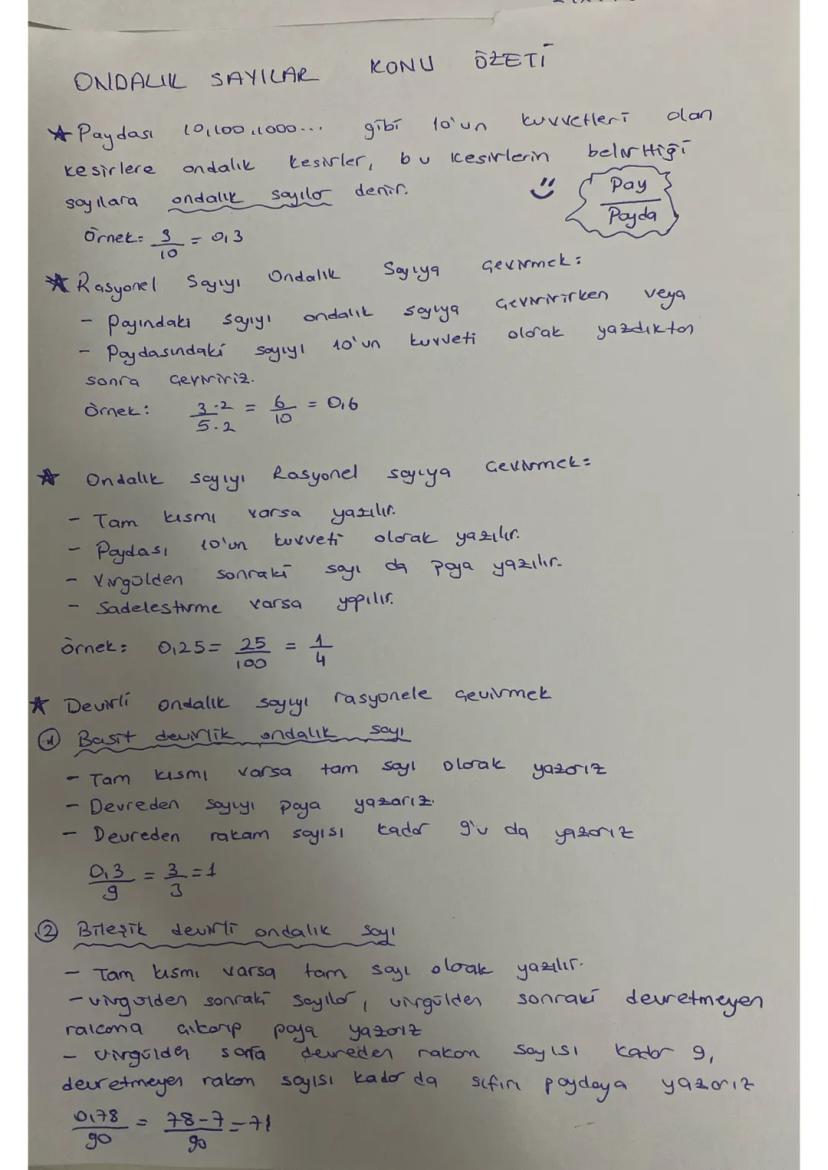 ONDALIK SAYILAR KONU ÖZETİ
★ Paydası 10,100,1000... gibi 10'un kuvvetleri olan
kesirlere ondalık kesirler, bu kesirlerin belirttiği
sayılara ondalık sayılar denir.
Pay
Payda
Örnek: 3/10 = 0,3
★ Rasyonel Sayıyı Ondalık Sayıya Çevirmek:
- Payındaki sayıyı ondalık sayıya çevirirken veya
- Paydasındaki sayıyı 10'un kuvveti olarak yazdıktan
sonra çeviririz.
Örnek: 3.2/5.2 = 6/10 = 0,6
★ Ondalık sayıyı Rasyonel sayıya Çevirmek:
- Tam kısmı varsa yazılır.
- Paydası 10'un kuvveti olarak yazılır.
- Virgülden sonraki sayı da paya yazılır.
- Sadeleştirme varsa yapılır.
örnek: 0,25 = 25/100 = 1/4
★ Devirli ondalık sayıyı rasyonele çevirmek
1 Basit devirlik ondalık sayı
- Tam kısmı varsa tam sayı olarak yazarız
- Devreden sayıyı paya yazarız.
- Devreden rakam sayısı kadar 9'u da yazarız
0,3/9 = 3/3 = 1
2 Bileşik devirli ondalık sayı
- Tam kısmı varsa tam sayı olarak yazılır.
- virgülden sonraki sayılar, virgülden sonraki devretmeyen
rakama çıkarıp paya yazarız
- virgülden sonra devreden rakam sayısı kadar 9,
devretmeyen rakam sayısı kadar da sıfırı paydaya yazarız
0,78/90 = 78-7/90 = 71